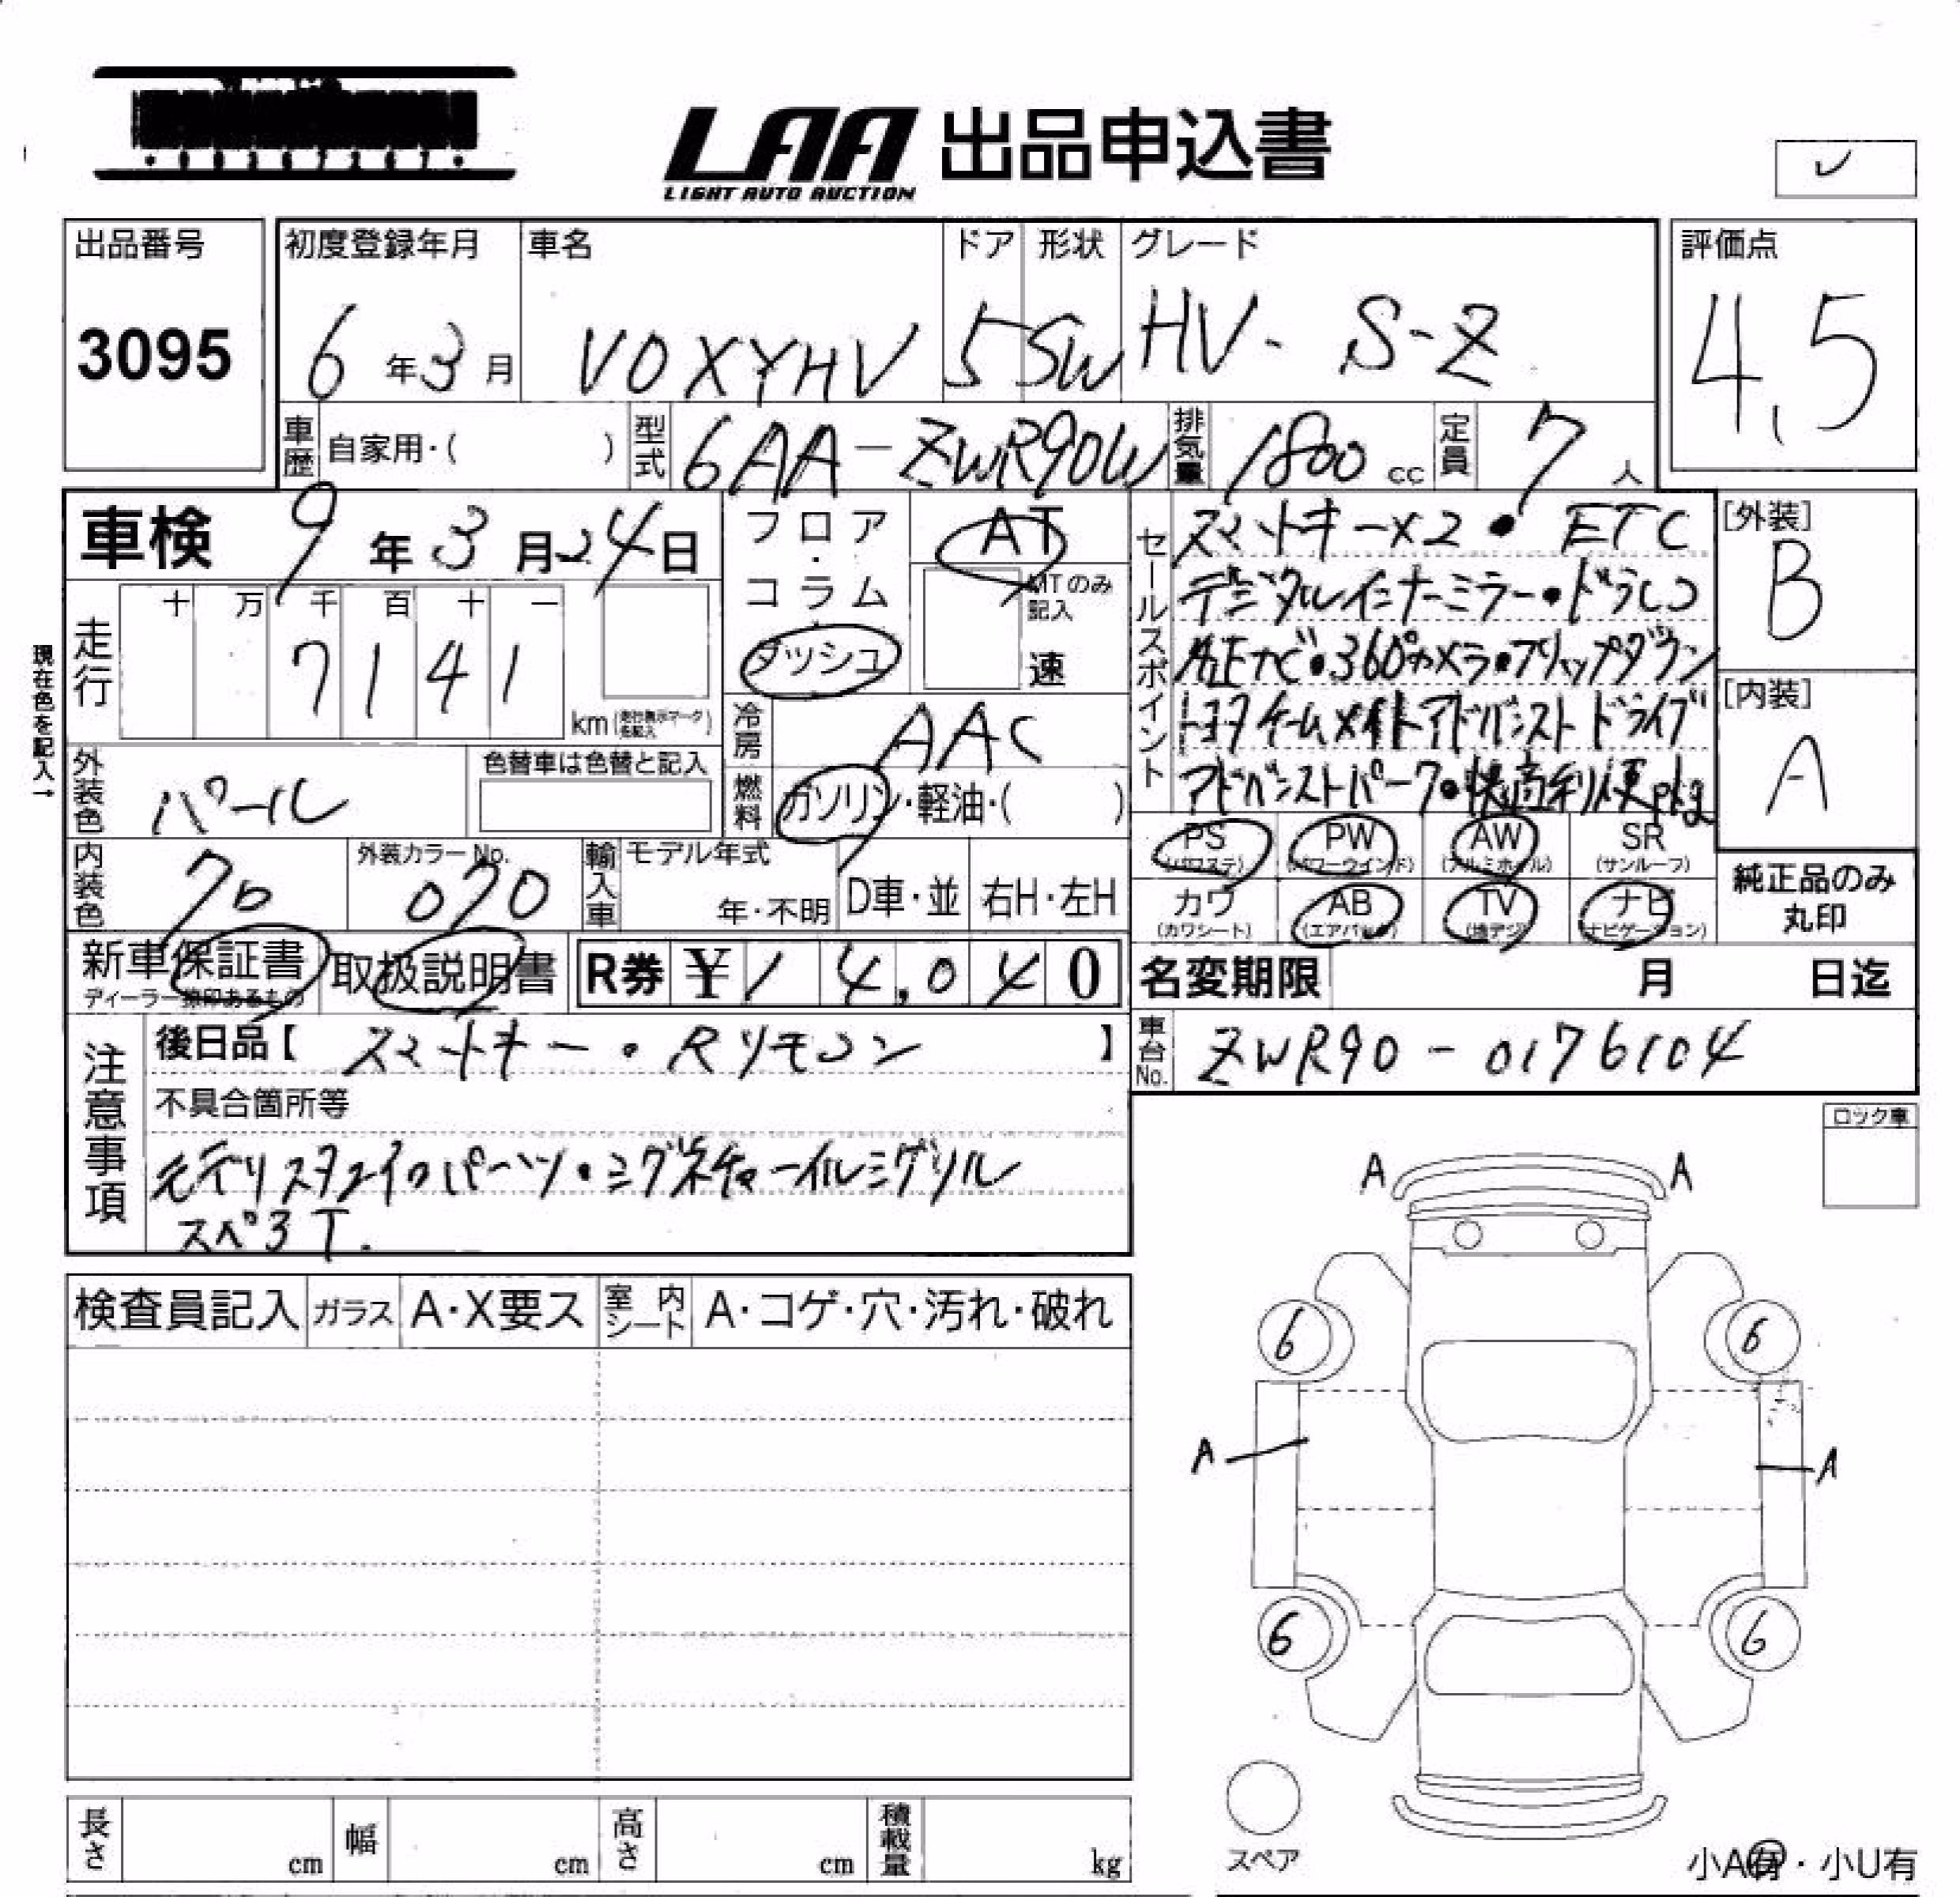 LAA 出品申込書
LIGHT AUTO AUCTION
出品番号
3095
初度登録年月
6年3月
車名
VOXYHV
ドア
5
形状
SW
グレード
HV- S-Z
評価点
4.5
車歴 自家用・( )
型式 6AA-ZWR90W
排気量 1800 cc
定員 7人
車検 9年3月24日
走行
十 万 千 百 十 一
7141
km
現在色を記入→
フロア・コラム
ダッシュ
AT
MTのみ記入
速
セールスポイント
スマートキー×2・ETC
デジタルインナーミラー・ドラレコ
純正ナビ・360°カメラ・フリップダウン
トヨタチームメイトアドバンストドライブ
アドバンストパーク・快適利便pkg
[外装]
B
[内装]
A
冷房 AAC
燃料 ガソリン・軽油・( )
外装色 パール
色替車は色替と記入
内装色 70
外装カラーNo.
070
輸入車
モデル年式
年・不明
D車・並
右H・左H
PS (パワステ)
PW (パワーウインド)
AW (アルミホイル)
SR (サンルーフ)
カワ (カワシート)
AB (エアバック)
TV (地デジ)
ナビ (ナビゲーション)
純正品のみ
丸印
新車保証書
取扱説明書
R券 ¥14,040
名変期限 月 日迄
車台No. ZWR90-0176104
注意事項
後日品【 スマートキー・Rリモコン 】
不具合箇所等
モデリスタエアロパーツ・シグネチャーイルミグリル
スペ3T.
ロック車
A A
6 6
A A
6 6
検査員記入 ガラス A・X要ス 室内シート A・コゲ・穴・汚れ・破れ
長さ cm 幅 cm 高さ cm 積載量 kg
スペア
小A有・小U有